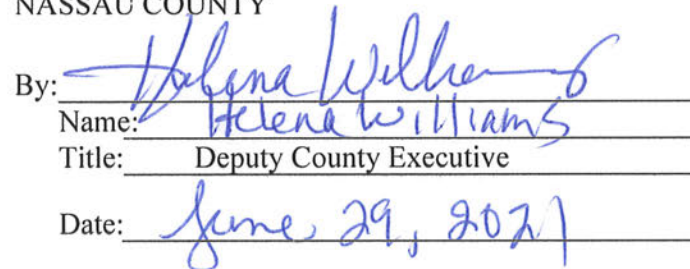 NASSAU COUNTY
By: Helena Williams
Name: Helena Williams
Title: Deputy County Executive
Date: June 29, 2021